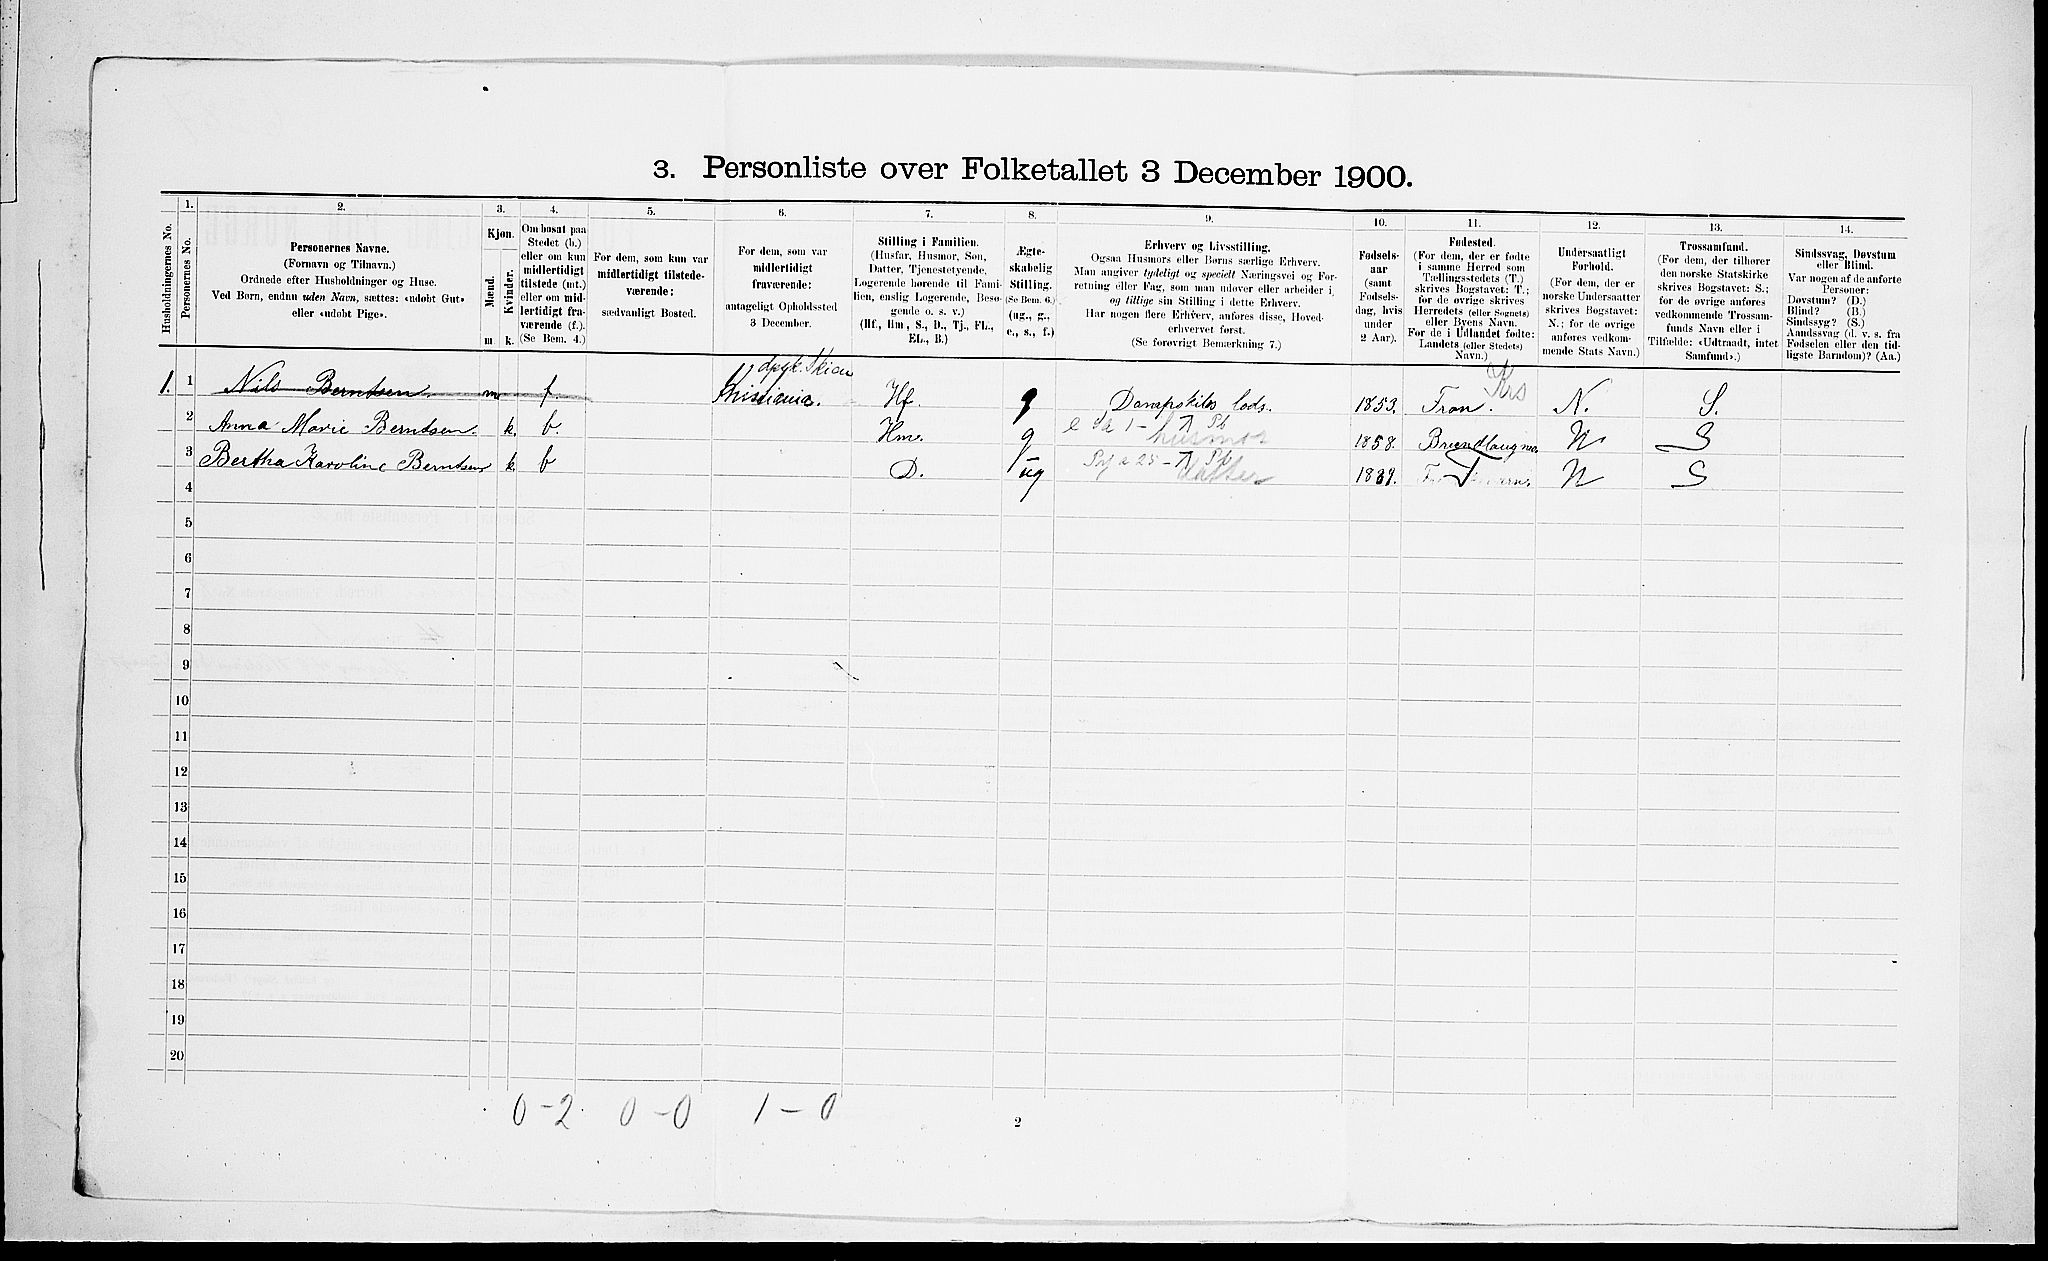 3. Personliste over Folketallet 3 December 1900.
Husholdningernes No.
1.
Personernes No.
2.
Personernes Navne.
(Fornavn og Tilnavn.)
Ordnede efter Husholdninger og Huse.
Ved Børn, endnu uden Navn, sættes: «udøbt Gut»
eller «udøbt Pige».
3.
Kjøn.
Mænd.
Kvinder.
m
k.
4.
Om bosat paa
Stedet (b.)
eller om kun
midlertidigt
tilstede (mt.)
eller om mid-
lertidigt fra-
værende (f.).
(Se Bem. 4.)
5.
For dem, som kun var
midlertidigt tilstede-
værende:
sædvanligt Bosted.
6.
For dem, som var
midlertidigt
fraværende:
antageligt Opholdssted
3 December.
7.
Stilling i Familien.
(Husfar, Husmor, Søn,
Datter, Tjenestetyende,
Logerende hørende til Fami-
lien, enslig Logerende, Besø-
gende o. s. v.)
(Hf., Hm., S., D., Tj., FL.,
EL., B.)
8.
Ægte-
skabelig
Stilling.
(Se Bem. 6.)
(ug., g.,
e., s., f.)
9.
Erhverv og Livsstilling.
Ogsaa Husmors eller Børns særlige Erhverv.
Man angiver tydeligt og specielt Næringsvei og For-
retning eller Fag, som man udøver eller arbeider i,
og tillige sin Stilling i dette Erhverv.
Har nogen flere Erhverv, anføres disse, Hoved-
erhvervet først.
(Se forøvrigt Bemærkning 7.)
10.
Fødsels-
aar
(samt
Fødsels-
dag, hvis
under
2 Aar).
11.
Fødested.
(For dem, der er fødte
i samme Herred som
Tællingsstedets (T.)
skrives Bogstavet: T.;
for de øvrige skrives
Herredets (eller Sognets)
eller Byens Navn.
For de i Udlandet fødte:
Landets (eller Stedets)
Navn.)
12.
Undersaatligt
Forhold.
(For dem, der er
norske Undersaatter
skrives Bogstavet:
N.; for de øvrige
anføres vedkom-
mende Stats Navn.)
13.
Trossamfund.
(For dem, der tilhører
den norske Statskirke
skrives Bogstavet: S.;
for de øvrige anføres
vedkommende Trossam-
funds Navn eller i
Tilfælde: «Udtraadt, intet
Samfund».)
14.
Sindssvag, Døvstum
eller Blind.
Var nogen af de anførte
Personer:
Døvstum? (D.)
Blind? (B.)
Sindssyg? (S.)
Aandssvag (d. v. s. fra
Fødselen eller den tid-
ligste Barndom)? (Aa.)
1. 1 Nils Berntsen m f. Kristiania. Hf. g 1853. N. S.
2 Anna Marie Berntsen. k. b. Hm. g husmor 1858. N S
3 Bertha Karoline Berntsen k b D. ug datter T N S
4
5
6
7
8
9
10
11
12
13
14
15
16
17
18
19
20
0-2. 0-0 1-0
2